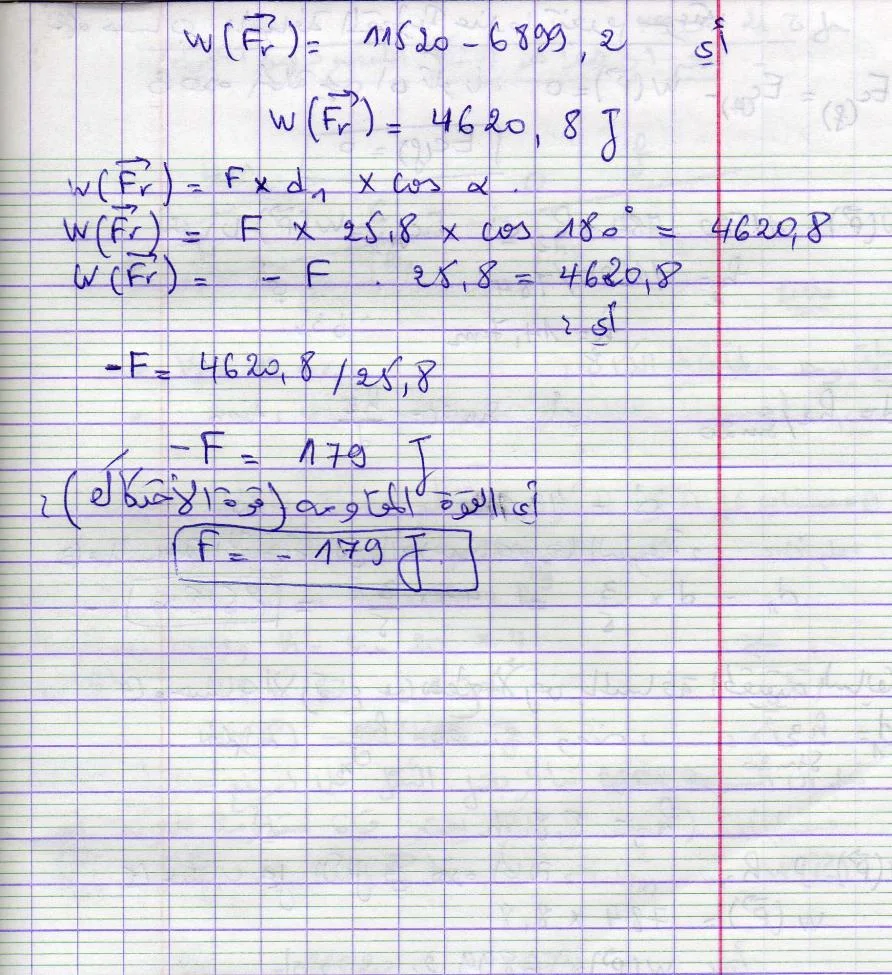 W(Fr) = 11520 - 6899,2 أي
W(Fr) = 4620,8 J
W(Fr) = F x d1 x cos α.
W(Fr) = F x 25,8 x cos 180° = 4620,8
W(Fr) = - F . 25,8 = 4620,8
أي:
-F = 4620,8 / 25,8
-F = 179 J
أي القوة المقاومة (قوة الاحتكاك):
F = - 179 J